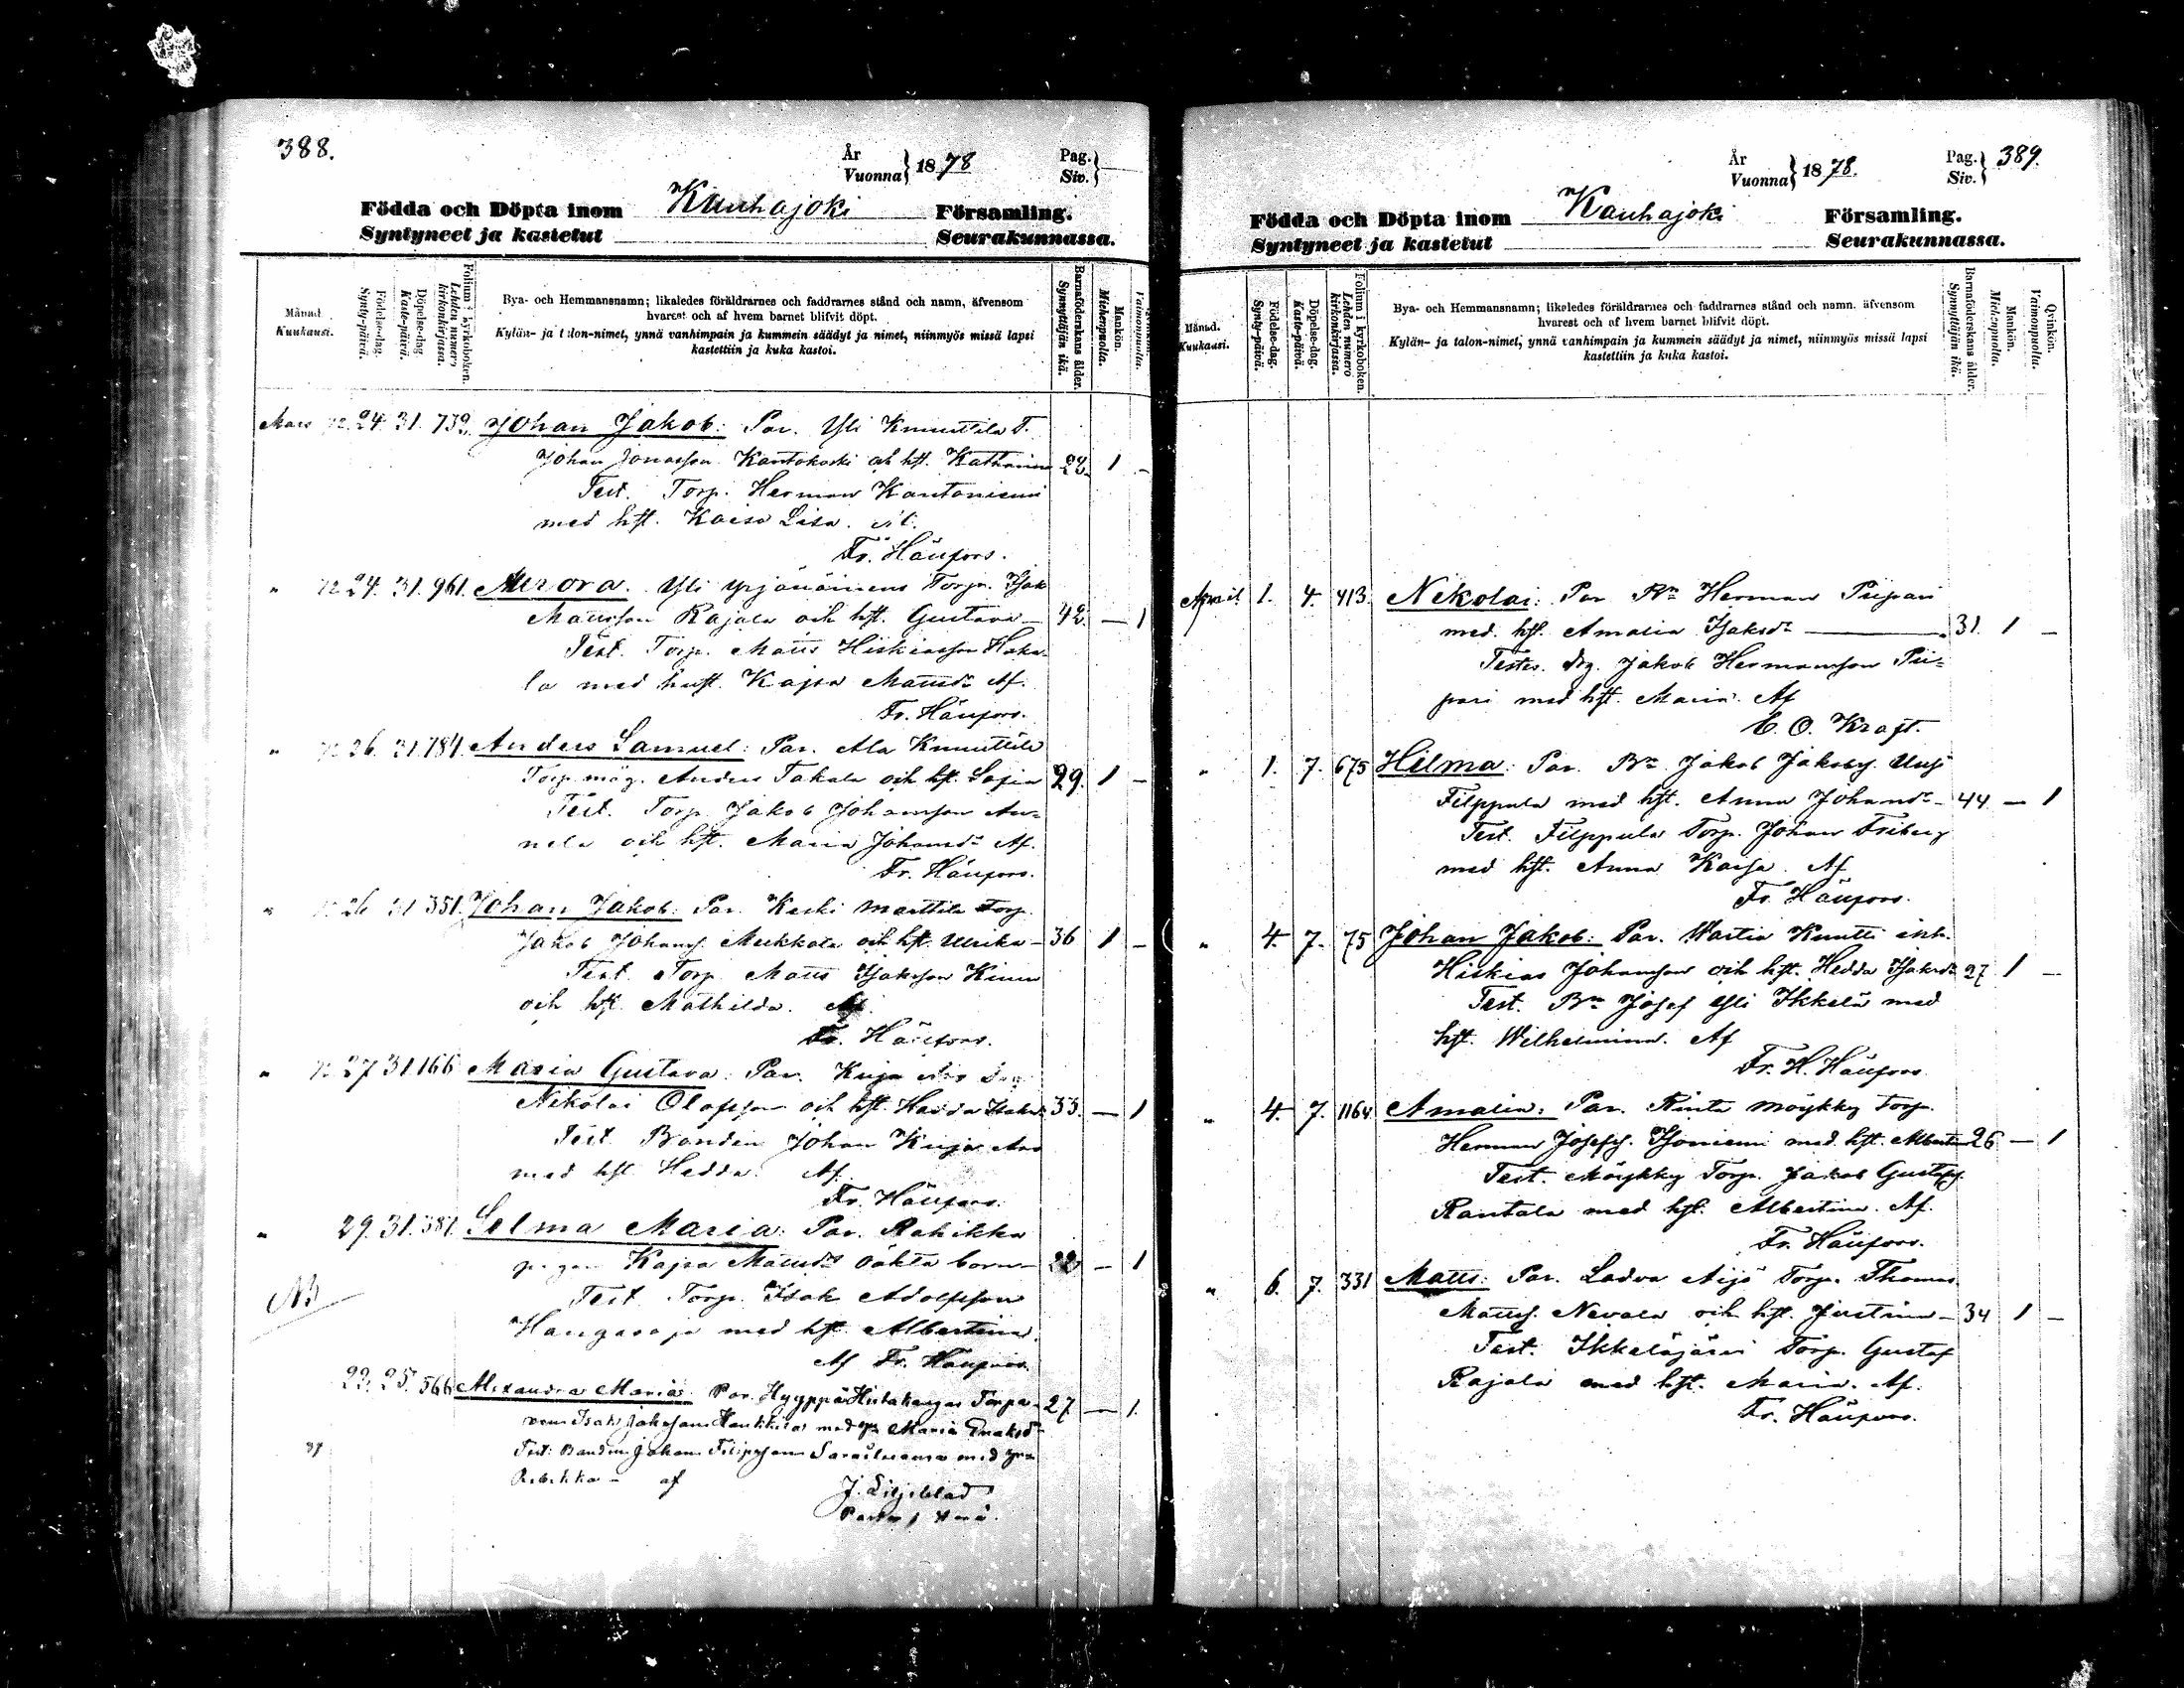 388.
År
Vuonna} 1878
Pag.
Siv.}
Födda och Döpta inom Kauhajoki Församling.
Syntyneet ja kastetut Seurakunnassa.
Månad.
Kuukausi.
Födelse-dag.
Synty-päivä.
Döpelse-dag
Kaste-päivä.
Folium i kyrkoboken.
Lehden numero
kirkonkirjassa.
Bya- och Hemmansnamn; likaledes föräldrarnes och faddrarnes stånd och namn, äfvensom
hvarest och af hvem barnet blifvit döpt.
Kylän- ja talon-nimet, ynnä vanhimpain ja kummein säädyt ja nimet, niinmyös missä lapsi
kastettiin ja kuka kastoi.
Barnaföderskans ålder.
Synnyttäjän ikä.
Mankön.
Miehenpuolta.
Vaimonpuolta.
Mars 24. 31. 732. Johan Jakob: Par. Yli Knuuttila T.
Johan Jonasson Kantokoski och hst. Katharina 28. 1 -
Test. Torp. Herman Kantoniemi
med hst. Kaisa Lisa.
Fr. Häufors.
" 24. 31. 961. Aurora. Yli Torp. Isak
Mattsson Rajala och hst. Gustava - 42. - 1
Test. Torp. Matts Hiskiasson Haka-
la med hust. Kajsa Mattsdr Af.
Fr. Häufors.
" 26. 31. 784. Anders Samuel: Par. Ala Knuuttila
Torp. måg. Anders Takala och hst. Sofia 29. 1 -
Test. Torp. Jakob Johansson An-
nala och hst. Maria Johansdr Af.
Fr. Häufors.
" 26 31 351. Johan Jakob: Par. Keski Marttila Torp.
Jakob Johanss. Mukkala och hst. Ulrika - 36 1 -
Test. Torp. Matts Isaksson Kinnu
och hst. Mathilda. Af.
Fr. Häufors.
" 27 31. 166 Maria Gustava: Par. Kuja Aro
Nikolai Olofsson och hst. Hedda Isaksdr 33. - 1
Test. Bonden Johan Kuja Aro
med hst. Hedda. Af.
Fr. Häufors.
" 29. 31. 387. Selma Maria: Par. Rahikka
pigan Kajsa Mattsdr oäkta barn - 22 - 1
NB
Test. Torp. Isak Adolfsson
Hangasoja med hst. Albertina.
Af Fr. Häufors.
22. 25. 566 Alexandra Maria: Par. Hyyppä Hiitakangas Torpa- 27 - 1.
ren Isak Jakobsson med Maria
Test: Bonden Johan Filipsson med
Rebekka - af
J. Liljeblad
389.
År
Vuonna} 1878.
Pag.
Siv.}
Födda och Döpta inom Kauhajoki Församling.
Syntyneet ja kastetut Seurakunnassa.
Månad.
Kuukausi.
Födelse-dag.
Synty-päivä.
Döpelse-dag.
Kaste-päivä.
Folium i kyrkoboken.
Lehden numero
kirkonkirjassa.
Bya- och Hemmansnamn; likaledes föräldrarnes och faddrarnes stånd och namn. äfvensom
hvarest och af hvem barnet blifvit döpt.
Kylän- ja talon-nimet, ynnä vanhimpain ja kummein säädyt ja nimet, niinmyös missä lapsi
kastettiin ja kuka kastoi.
Barnaföderskans ålder.
Synnyttäjän ikä.
Mankön.
Miehenpuolta.
Qvinkön.
Vaimonpuolta.
April 1. 4. 413. Nikolai: Par Bn Herman Piipari
med. hst. Amalia Isaksdr 31. 1 -
Testes. Jakob Hermansson Pii-
pari med hst. Maria. Af
E. O. Kraft.
" 1. 7. 675 Hilma: Par. Bn Jakob Jakobss. Uusi
Filppula med hst. Anna Johansdr - 44 - 1
Test. Filppula Torp. Johan Friberg
med hst. Anna Kaisa. Af
Fr. Häufors.
" 4. 7. 75 Johan Jakob: Par. Wartia Knutti inh.
Hiskias Johansson och hst. Hedda Isaksdr 27. 1 -
Test. Bn Josef Yli Ikkelä med
hst. Wilhelmina. Af
Fr. H. Häufors.
" 4. 7. 1164 Amalia: Par. Rinta Möykky Torp.
Herman Josefss. Isoniemi med. hst. Albertina 26 - 1
Test. Möykky Torp. Jakob Gustafss.
Rantala med hst. Albertina. Af.
Fr. Häufors.
" 6. 7. 331 Matts: Par. Ladva Äijö Torp. Thomas
Mattss. Nevala och hst. Justina - 34 1 -
Test. Ikkeläjärvi Torp. Gustaf
Rajala med hst. Maria. Af.
Fr. Häufors.